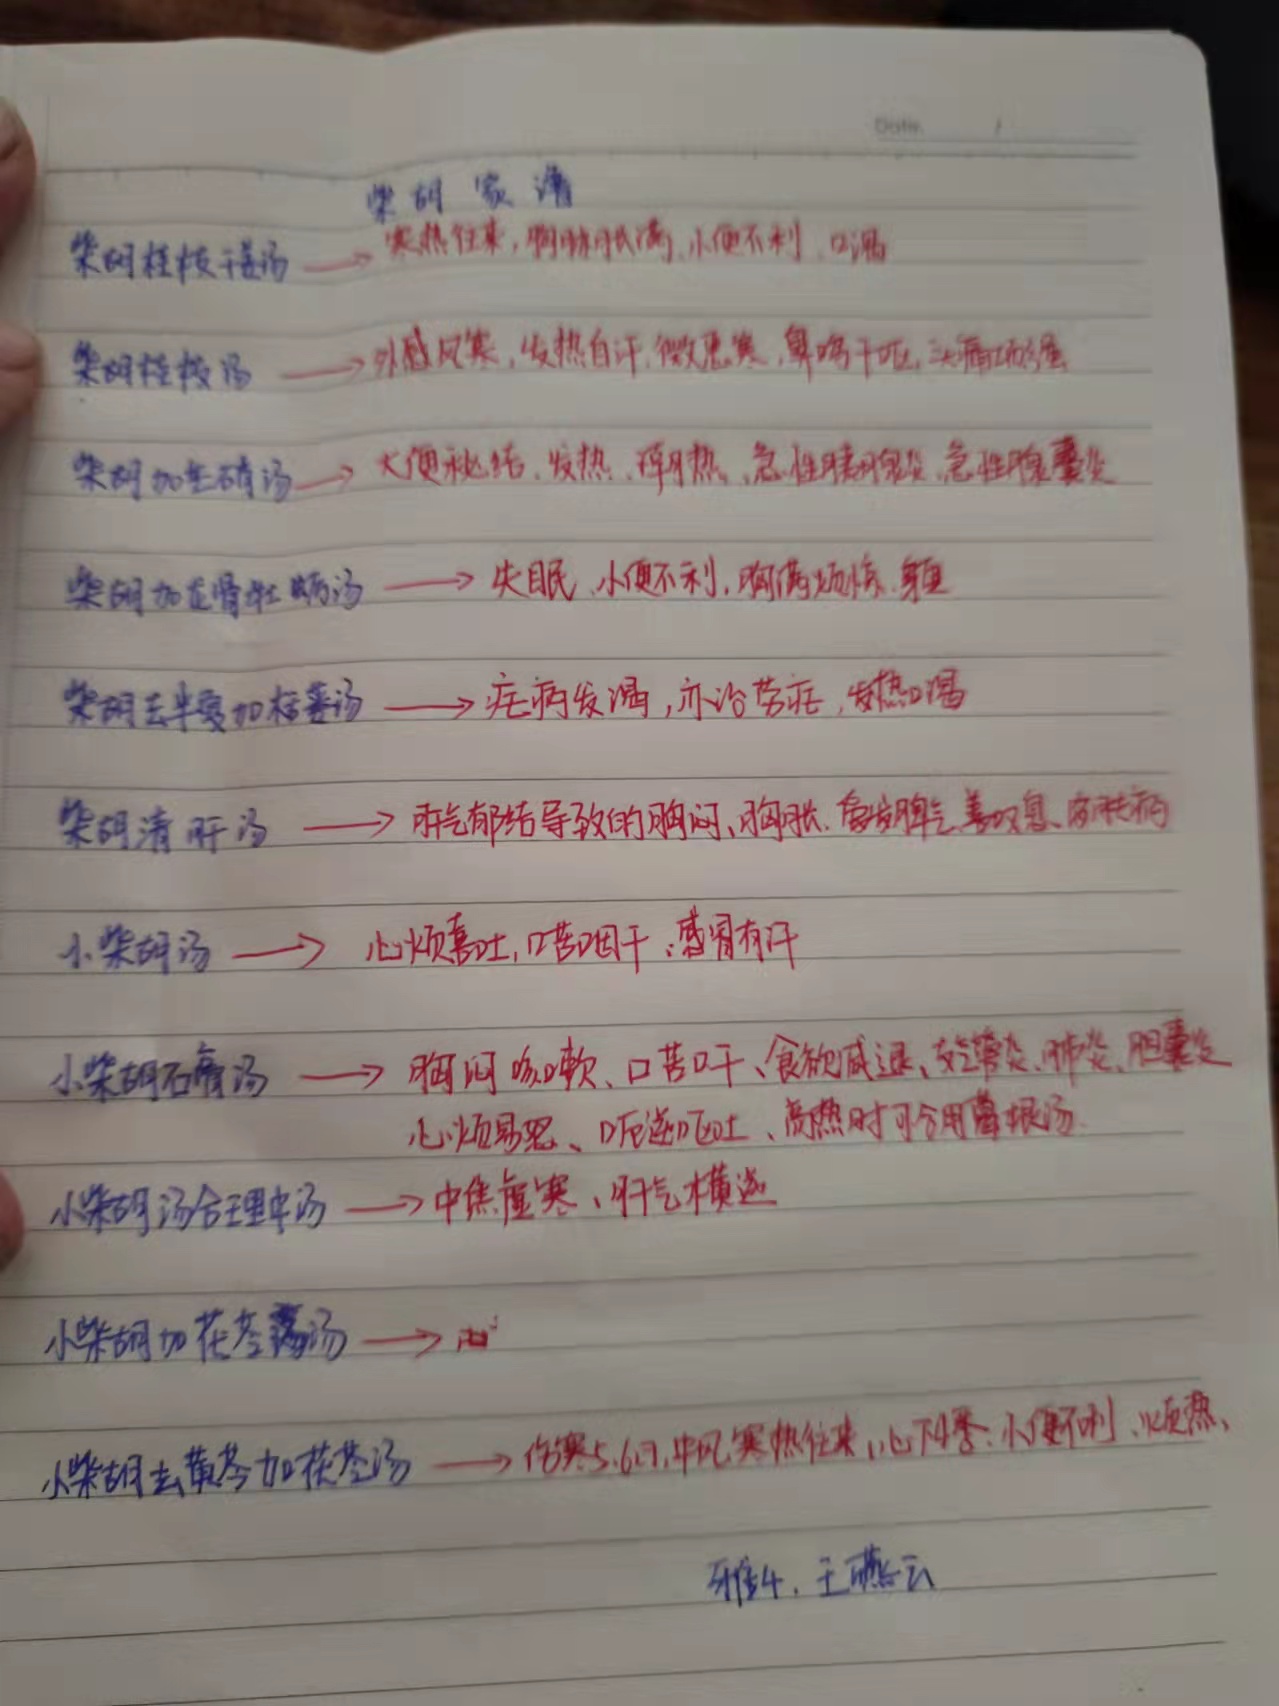 Date /
柴胡家谱
柴胡桂枝干姜汤 → 寒热往来，胸胁胀满、小便不利、口渴
柴胡桂枝汤 → 外感风寒，发热自汗，微恶寒，鼻鸣干呕，头痛项强
柴胡加芒硝汤 → 大便秘结、发热、潮热、急性胰腺炎、急性胆囊炎
柴胡加龙骨牡蛎汤 → 失眠、小便不利，胸满烦惊、身重
柴胡去半夏加栝蒌汤 → 疟病发渴，亦治劳疟，发热口渴
柴胡清肝汤 → 肝气郁结导致的胸闷、胸胀、急发脾气、善叹息、皮肤病
小柴胡汤 → 心烦喜吐，口苦咽干，感冒有汗
小柴胡石膏汤 → 胸闷咳嗽、口苦口干、食欲减退、支气管炎、肺炎、胆囊炎
心烦易怒、呃逆呕吐、高热时可合用葛根汤.
小柴胡汤合理中汤 → 中焦虚寒、肝气横逆
小柴胡加茯苓汤 →
小柴胡去黄芩加茯苓汤 → 伤寒5.6日，中风，寒热往来，心下悸、小便不利、烦热、
雅4. 王燕云